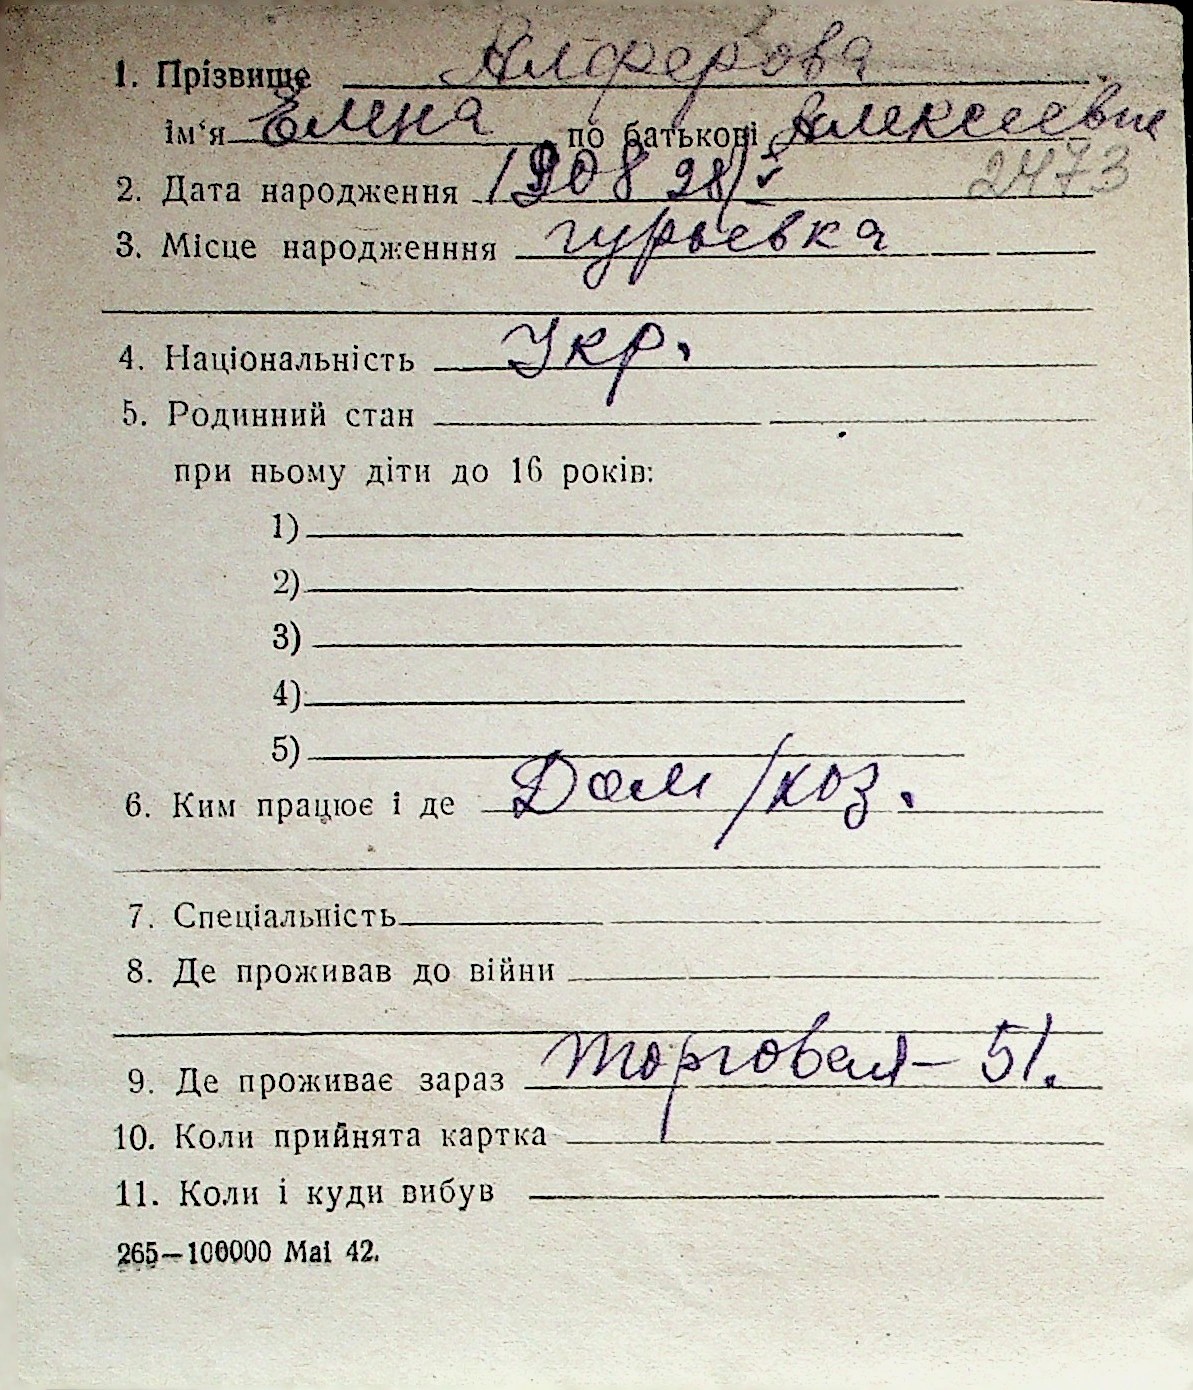 1. Прізвище Алферова
ім‘я Елена по батькові Алексеевна
2473
2. Дата народження 1908 28/V
3. Місце народженння гурьевка
4. Національність Укр.
5. Родинний стан
при ньому діти до 16 років:
1)
2)
3)
4)
5)
6. Ким працює і де Дом/хоз.
7. Спеціальність
8. Де проживав до війни
9. Де проживає зараз Торговая – 51.
10. Коли прийнята картка
11. Коли і куди вибув
265—100000 Mai 42.